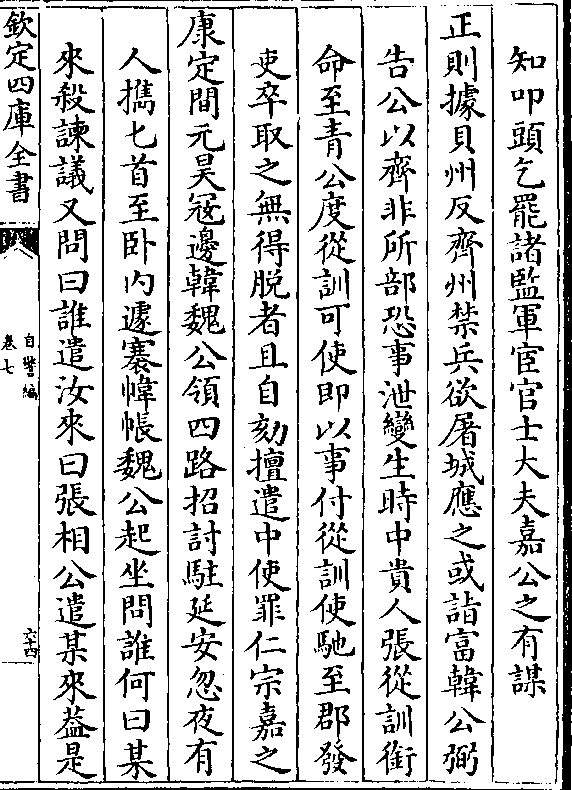 知叩頭乞罷諸監軍宦官士大夫嘉公之有謀
正則據貝州反齊州禁兵欲屠城應之或詣富韓公弼
告公以齊非所部恐事泄變生時中貴人張從訓銜
命至青公度從訓可使即以事付從訓使馳至郡發
吏卒取之無得脫者且自劾擅遣中使罪仁宗嘉之
康定間元昊寇邊韓魏公領四路招討駐延安忽夜有
人攜匕首至卧内遽褰幃帳魏公起坐問誰何曰某
來殺諫議又問曰誰遣汝來曰張相公遣某來葢是
欽定四庫全書
自警編
卷七
六十四